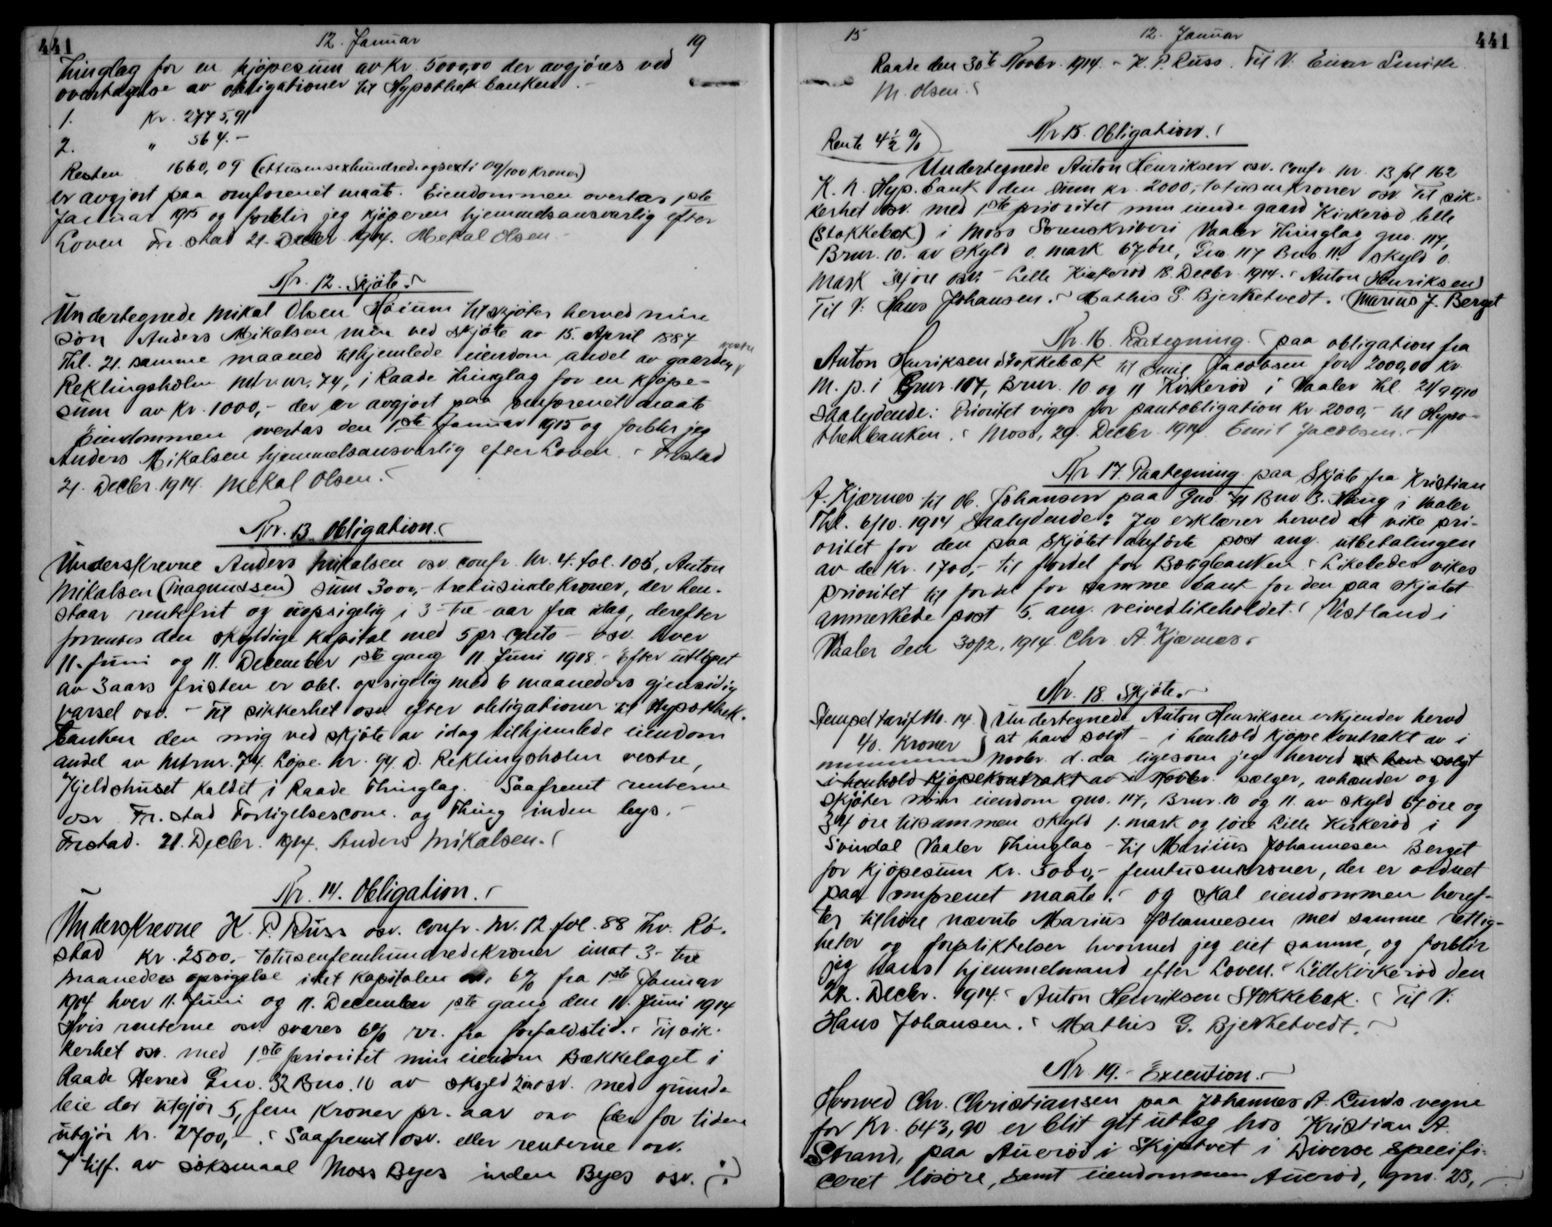 441
12. Januar
19
Thinglag for en kjöpesum av Kr. 5000,00 der avgjöres ved
overtagelse av obligationer til Hypothekbanken.-
1. Kr. 2775,91
2. " 564.-
Resten 1660,09 (ettusensexhundredeogsexti 09/100 kroner)
er avgjort paa omforenet maate. Eiendommen overtas 1ste
Januar 1915 og forblir jeg kjöperen hjemmelsansvarlig efter
Loven Fr.stad 21. Decbr. 1914. Mekal Olsen.-
Nr. 12. Skjöte.
Undertegnede Mikal Olsen Höium tilskjöter herved min
sön Anders Mikalsen min ved skjöte av 15. April 1887
Thl. 21. samme maaned tilhjemlede eiendom andel av gaarden vestre
Reklingsholm Mtr.nr. 74, i Raade Thinglag for en kjöpe-
sum av Kr. 1000,- der er avgjort paa omforenet maate
Eiendommen overtas den 1ste Januar 1915 og forblir jeg
Anders Mikalsen hjemmelsansvarlig efter Loven. Fr.stad
21. Decbr. 1914. Mekal Olsen.
Nr. 13. Obligation.
Underskrevne Anders Mikalsen osv. confr. Nr. 4. fol. 105, Anton
Mikalsen (Magnussen) sum 3000,- tretusindekroner, der hen-
staar rentefrit og uopsigelig i 3- tre aar fra idag, derefter
forrentes den skyldige kapital med 5 pr cento - osv. hver
11. Juni og 11. December 1ste gang 11 Juni 1918.- Efter utlöpet
av 3 aars fristen er obl. opsigelig med 6 maaneders gjensidig
varsel osv. - Til sikkerhet osv. efter obligationer til Hypothek-
banken den mig ved skjöte av idag tilhjemlede eiendom
andel av Mtr.nr. 74. Löpe Nr. 94. d. Reklingsholm vestre,
Kjeldshuset kaldet i Raade Thinglag. Saafremt renterne
osv Fr.stad Forligelsescom. og Thing inden bys.
Fr.stad. 21. Decbr. 1914. Anders Mikalsen.
Nr. 14. Obligation.
Underskrevne K. P. Russ osv. confr. Nr. 12 fol. 88 Thv. Rö-
stad Kr. 2500,- totusenfemhundredekroner imot 3- tre
maaneders opsigelse idet kapitalen 6% fra 1ste Januar
1914 hver 11. Juni og 11. December 1ste gang den 11. Juni 1914
Hvis renterne osv svares 6% rr. fra forfaldstid. Til sik-
kerhet osv. med 1ste prioritet min eiendom Bækkelaget i
Raade Herred Gno. 32 Bno. 10 av skyld 2 öre osv. med grunde
leie der utgjör 5, fem kroner pr. aar osv (den for tiden
utgjör Kr. 2700,-. Saafremt osv. eller renterne osv.
I tilf. av söksmaal Moss Byes inden Byes osv.
15
12. Januar
441
Raade den 30te Novbr. 1914 - K. P. Russ. Til V. Einar
M. Olsen.
Rente 4 1/2 %
Nr 15. Obligation.
Undertegnede Anton Henriksen osv. confr. nr. 13 fol 162
K. N. Hyp.bank den sum kr. 2000,- totusenkroner osv Til sik-
kerhet osv. med 1ste prioritet min eiende gaard Kirkeröd lille
(Stokkebæk) i Moss Sorenskriveri Vaaler Thinglag gno. 117,
Brnr. 10. av skyld 0. mark 67 öre, Gno 117 Bno. 11. skyld 0.
mark 34 öre osv. - Lille Kirkeröd 18. Decbr. 1914. Anton Henriksen
Til V: Hans Johansen. Mathis G. Bjerketvedt. (Marius J. Berget
Nr. 16. Paategning paa obligation fra
Anton Henriksen Stokkebæk til Emil Jacobsen for 2000,00 kr
m. p. i Gnr. 117, Brnr. 10 og 11 Kirkeröd i Vaaler Thl 21/9 1910
saalydende: Prioritet viges for pantobligation Kr 2000,- til Hypo-
thekbanken. Moss, 29. Decbr. 1914. Emil Jacobsen.-
Nr 17. Paategning paa Skjöte fra Kristian
A. Kjærnes til Ob. Johansen paa Gno 71 Bno 3. Haug i Vaaler
Thl. 6/10. 1914 Saalydende: Jeg erklærer herved at vike pri-
oritet for den paa skjötet anförte post ang. utbetalingen
av de Kr. 1700,- til fordel for Bøgbanken. Likeledes vikes
prioritet til fordel for samme bank for den paa skjötet
anmerkede post 5. ang. veivedlikeholdet. Vestland i
Vaaler den 30/12. 1914. Chr. A. Kjærnes.
Nr. 18 Skjöte.
Stempeltarif No. 14. 40. Kroner
Undertegnede Anton Henriksen erkjender herved
at have solgt - i henhold kjöpekontrakt av i
Novbr. d.aa ligesom jeg herved at han solgt
i henhold kjöpekontrakt av i Novbr. sælger, avhænder og
skjöter min eiendom gno. 117, Brnr. 10 og 11. av skyld 67 öre og
34 öre tilsammen skyld 1. mark og 1 öre Lille Kirkeröd i
Svindal Vaaler Thinglag - til Marius Johannesen Berget
for kjöpesum Kr. 5000,- femtusenkroner, der er ordnet
paa omforenet maate. og skal eiendommen heref-
ter tilhöre nævnte Marius Johannesen med samme rettig-
heter og forpliktelser hvormed jeg eiet samme, og forblir
jeg hans hjemmelmand efter Loven. Lille Kirkeröd den
22. Decbr. 1914. Anton Henriksen Stokkebæk. Til V:
Hans Johansen. Mathis G. Bjerketvedt.
Nr. 19. - Execution.
Hvorved Chr. Christiansen paa Johannes A. Lunds vegne
for Kr. 643,90 er blit git utlæg hos Kristian A.
Strand, paa Aueröd i Skiptvet i Diverse specifi-
ceret lösöre, samt eiendommen Aueröd, gno. 23,